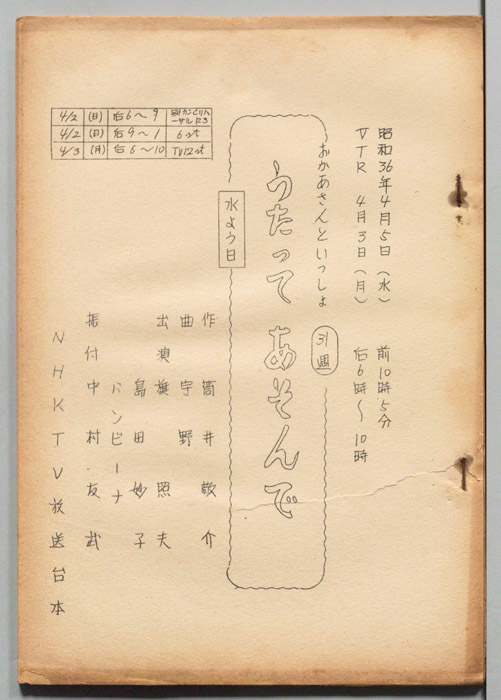 昭和36年4月5日（水） 前10時5分
VTR 4月3日（月） 后6時～10時
おかあさんといっしょ
31週
うたって あそんで
水よう日
4/2 （日） 后6～9
4/2 （日） 后9～1 6st
4/3 （月） 后6～10 TV12st
作 筒井敬介
曲 宇野
出演 旗照夫
島田妙子
バンビーナ
振付 中村・友武
NHKTV放送台本